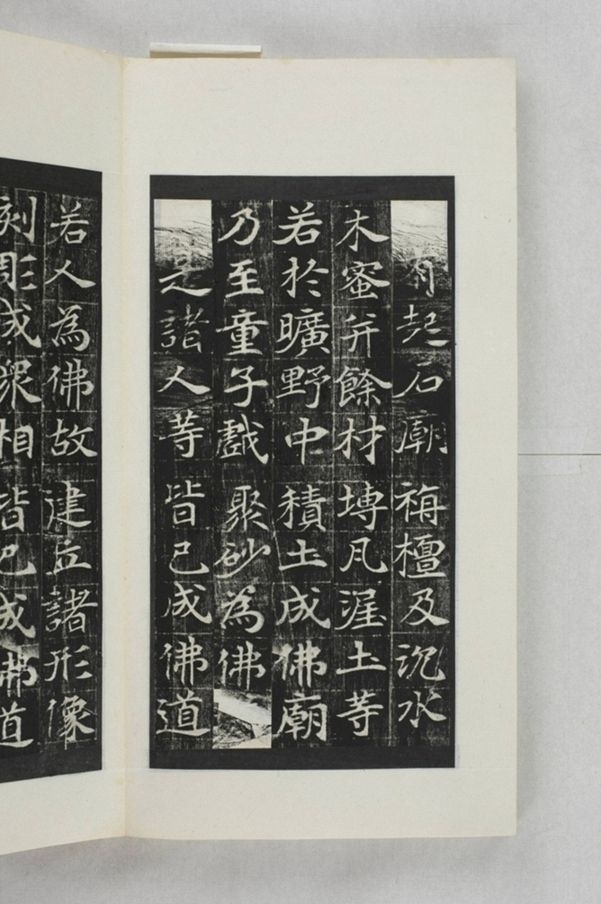 有起石廟栴檀及沉水
木蜜并餘材塼瓦埿土等
若於曠野中積土成佛廟
乃至童子戲聚砂為佛
是諸人等皆已成佛道
若人為佛故建立諸形像
刻彫成衆相皆已成佛道